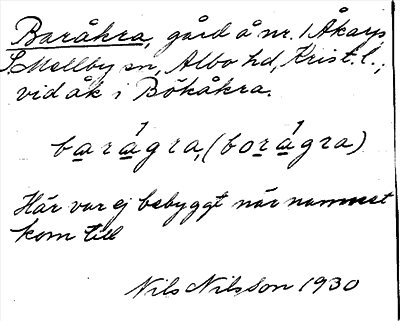 Baråkra, gård å nr. 1 Åkarp
S. Mellby sn, Albo hd, Krist. l.;
vid åk i Bökåkra.
barágra, (borágra)
Här var ej bebyggt när namnet
kom till
Nils Nilsson 1930